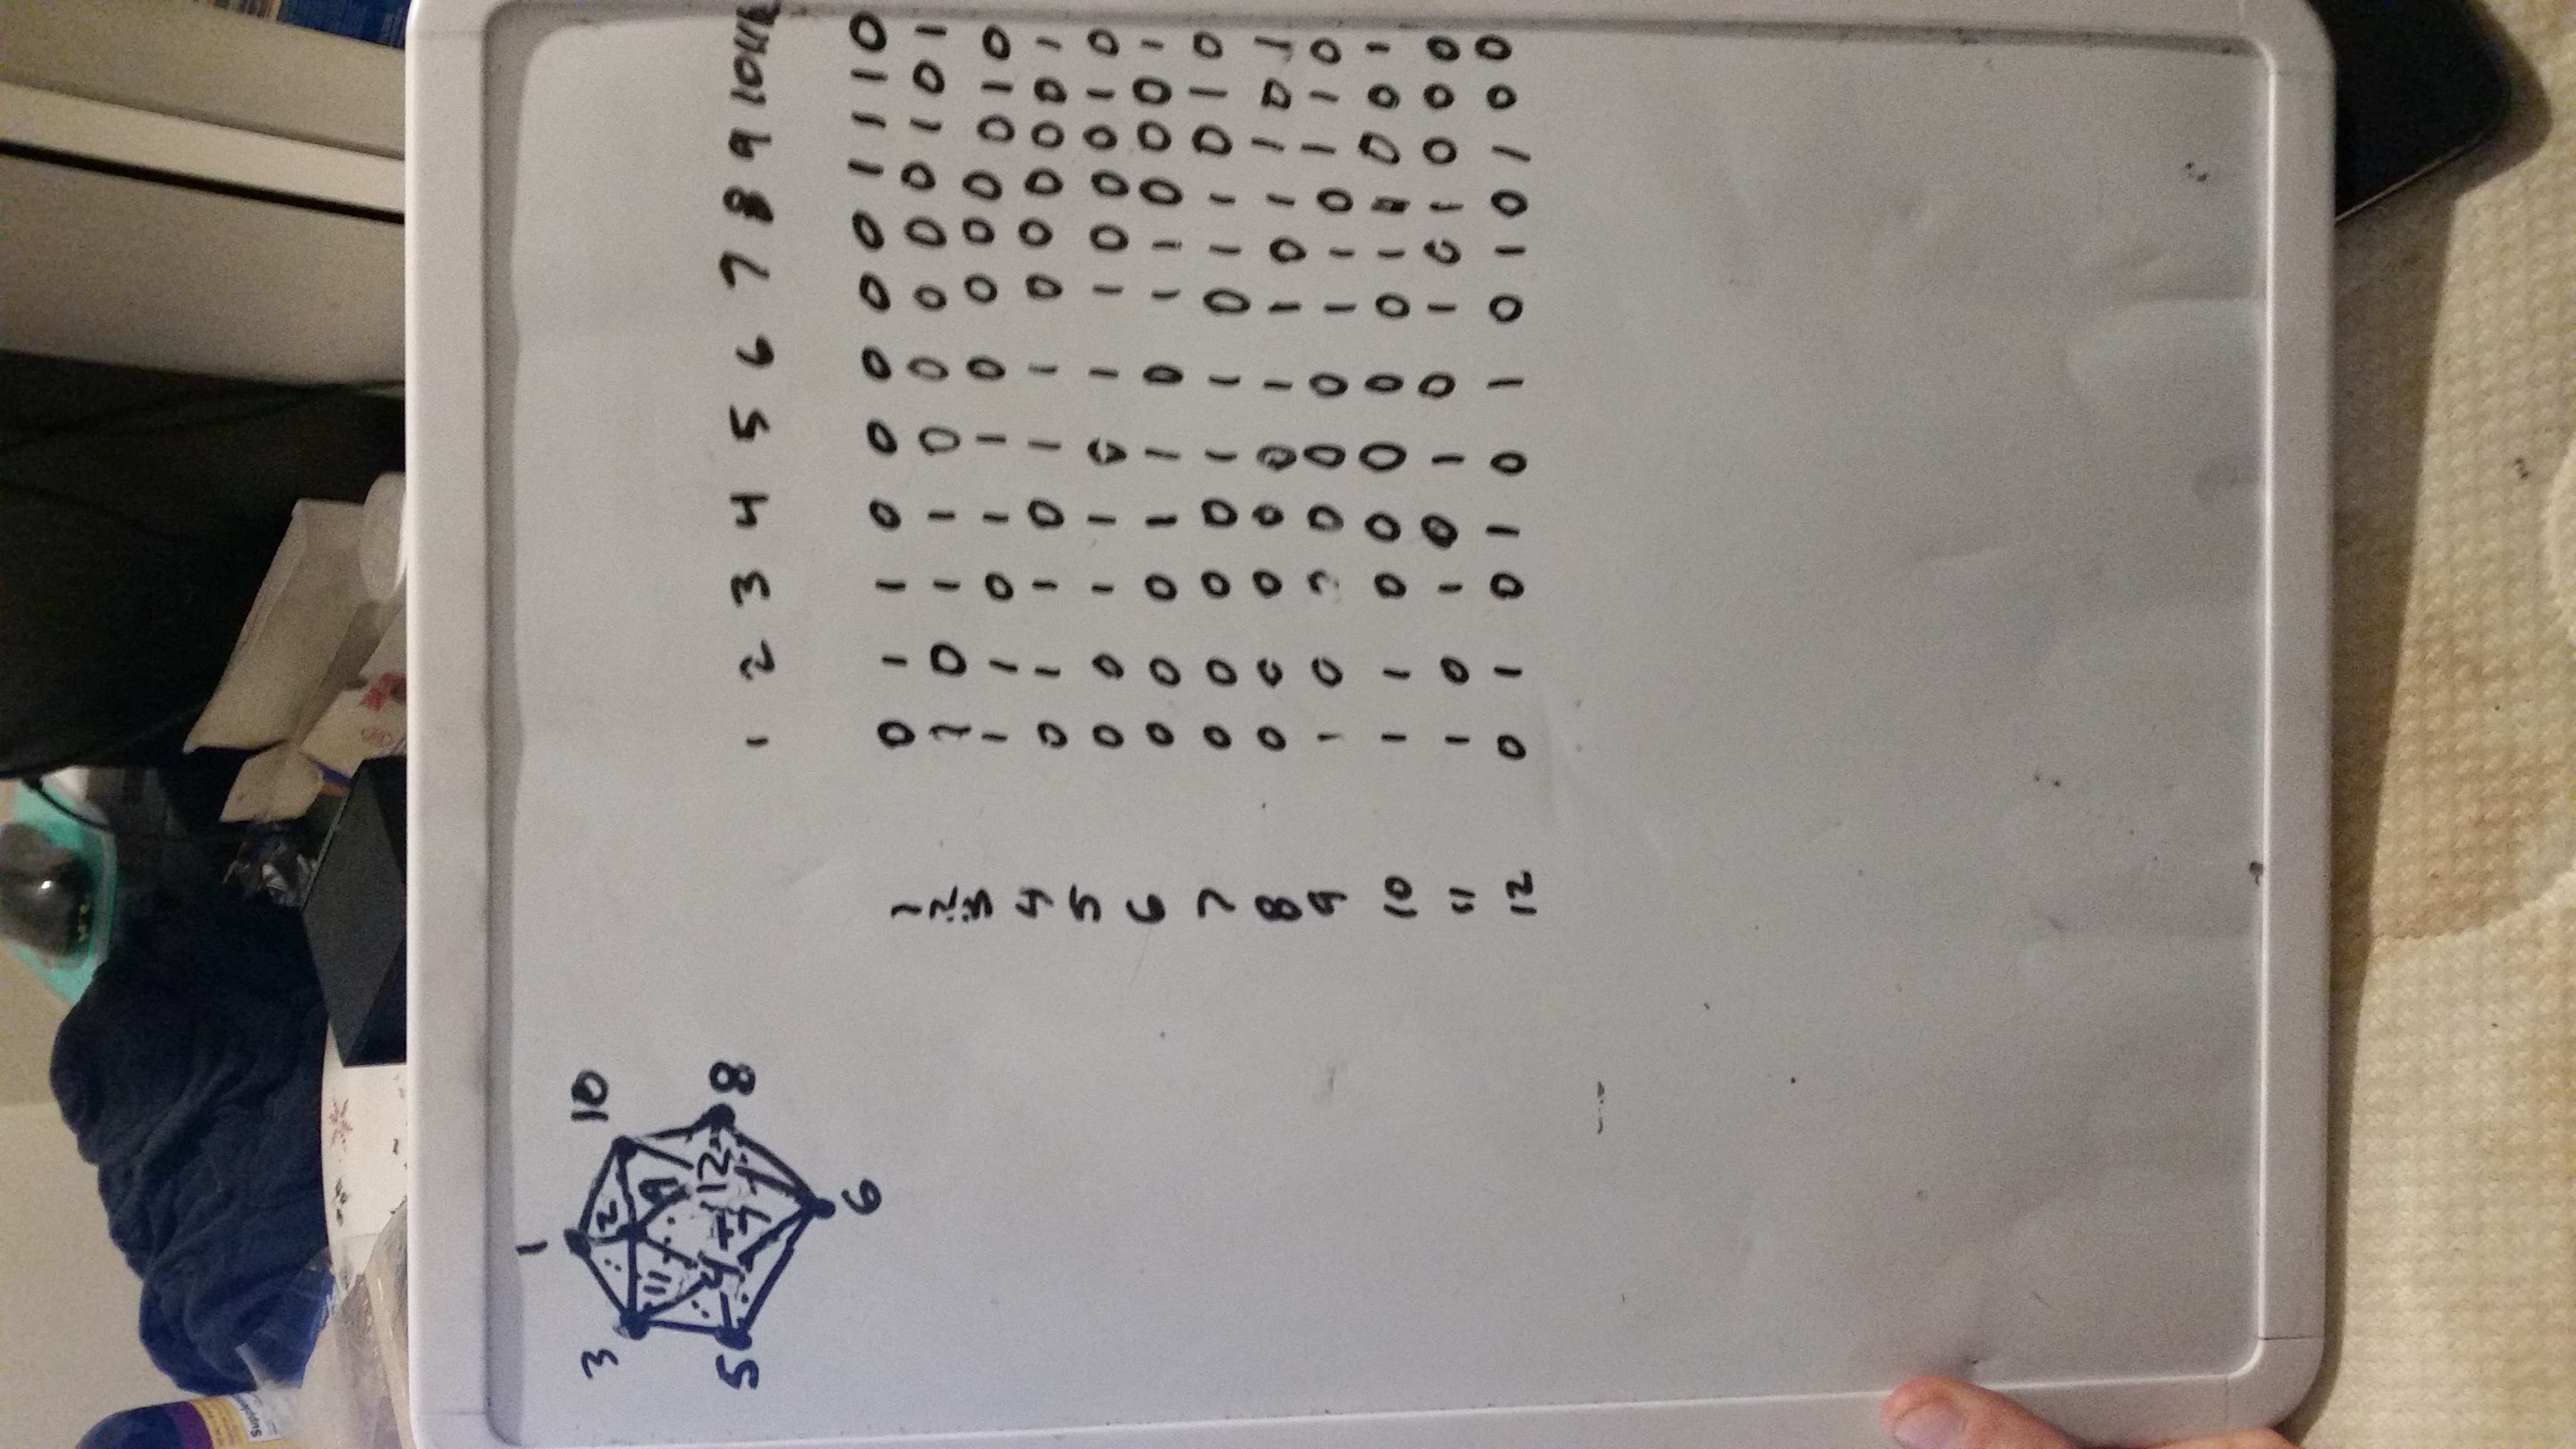 Supplem
1
3 10
2
11 9
5 4 12 8
7
6
1 2 3 4 5 6 7 8 9 10 11 12
1 0 1 1 0 0 0 0 0 1 1 1 0
2 1 0 1 1 0 0 0 0 0 1 0 1
3 1 1 0 1 1 0 0 0 0 0 1 0
4 0 1 1 0 1 1 0 0 0 0 0 1
5 0 0 1 1 0 1 1 0 0 0 1 0
6 0 0 0 1 1 0 1 1 0 0 0 1
7 0 0 0 0 1 1 0 1 1 0 1 0
8 0 0 0 0 0 1 1 0 1 1 0 1
9 1 0 0 0 0 0 1 1 0 1 1 0
10 1 1 0 0 0 0 0 1 1 0 0 1
11 1 0 1 0 1 0 1 0 1 0 0 0
12 0 1 0 1 0 1 0 1 0 1 0 0